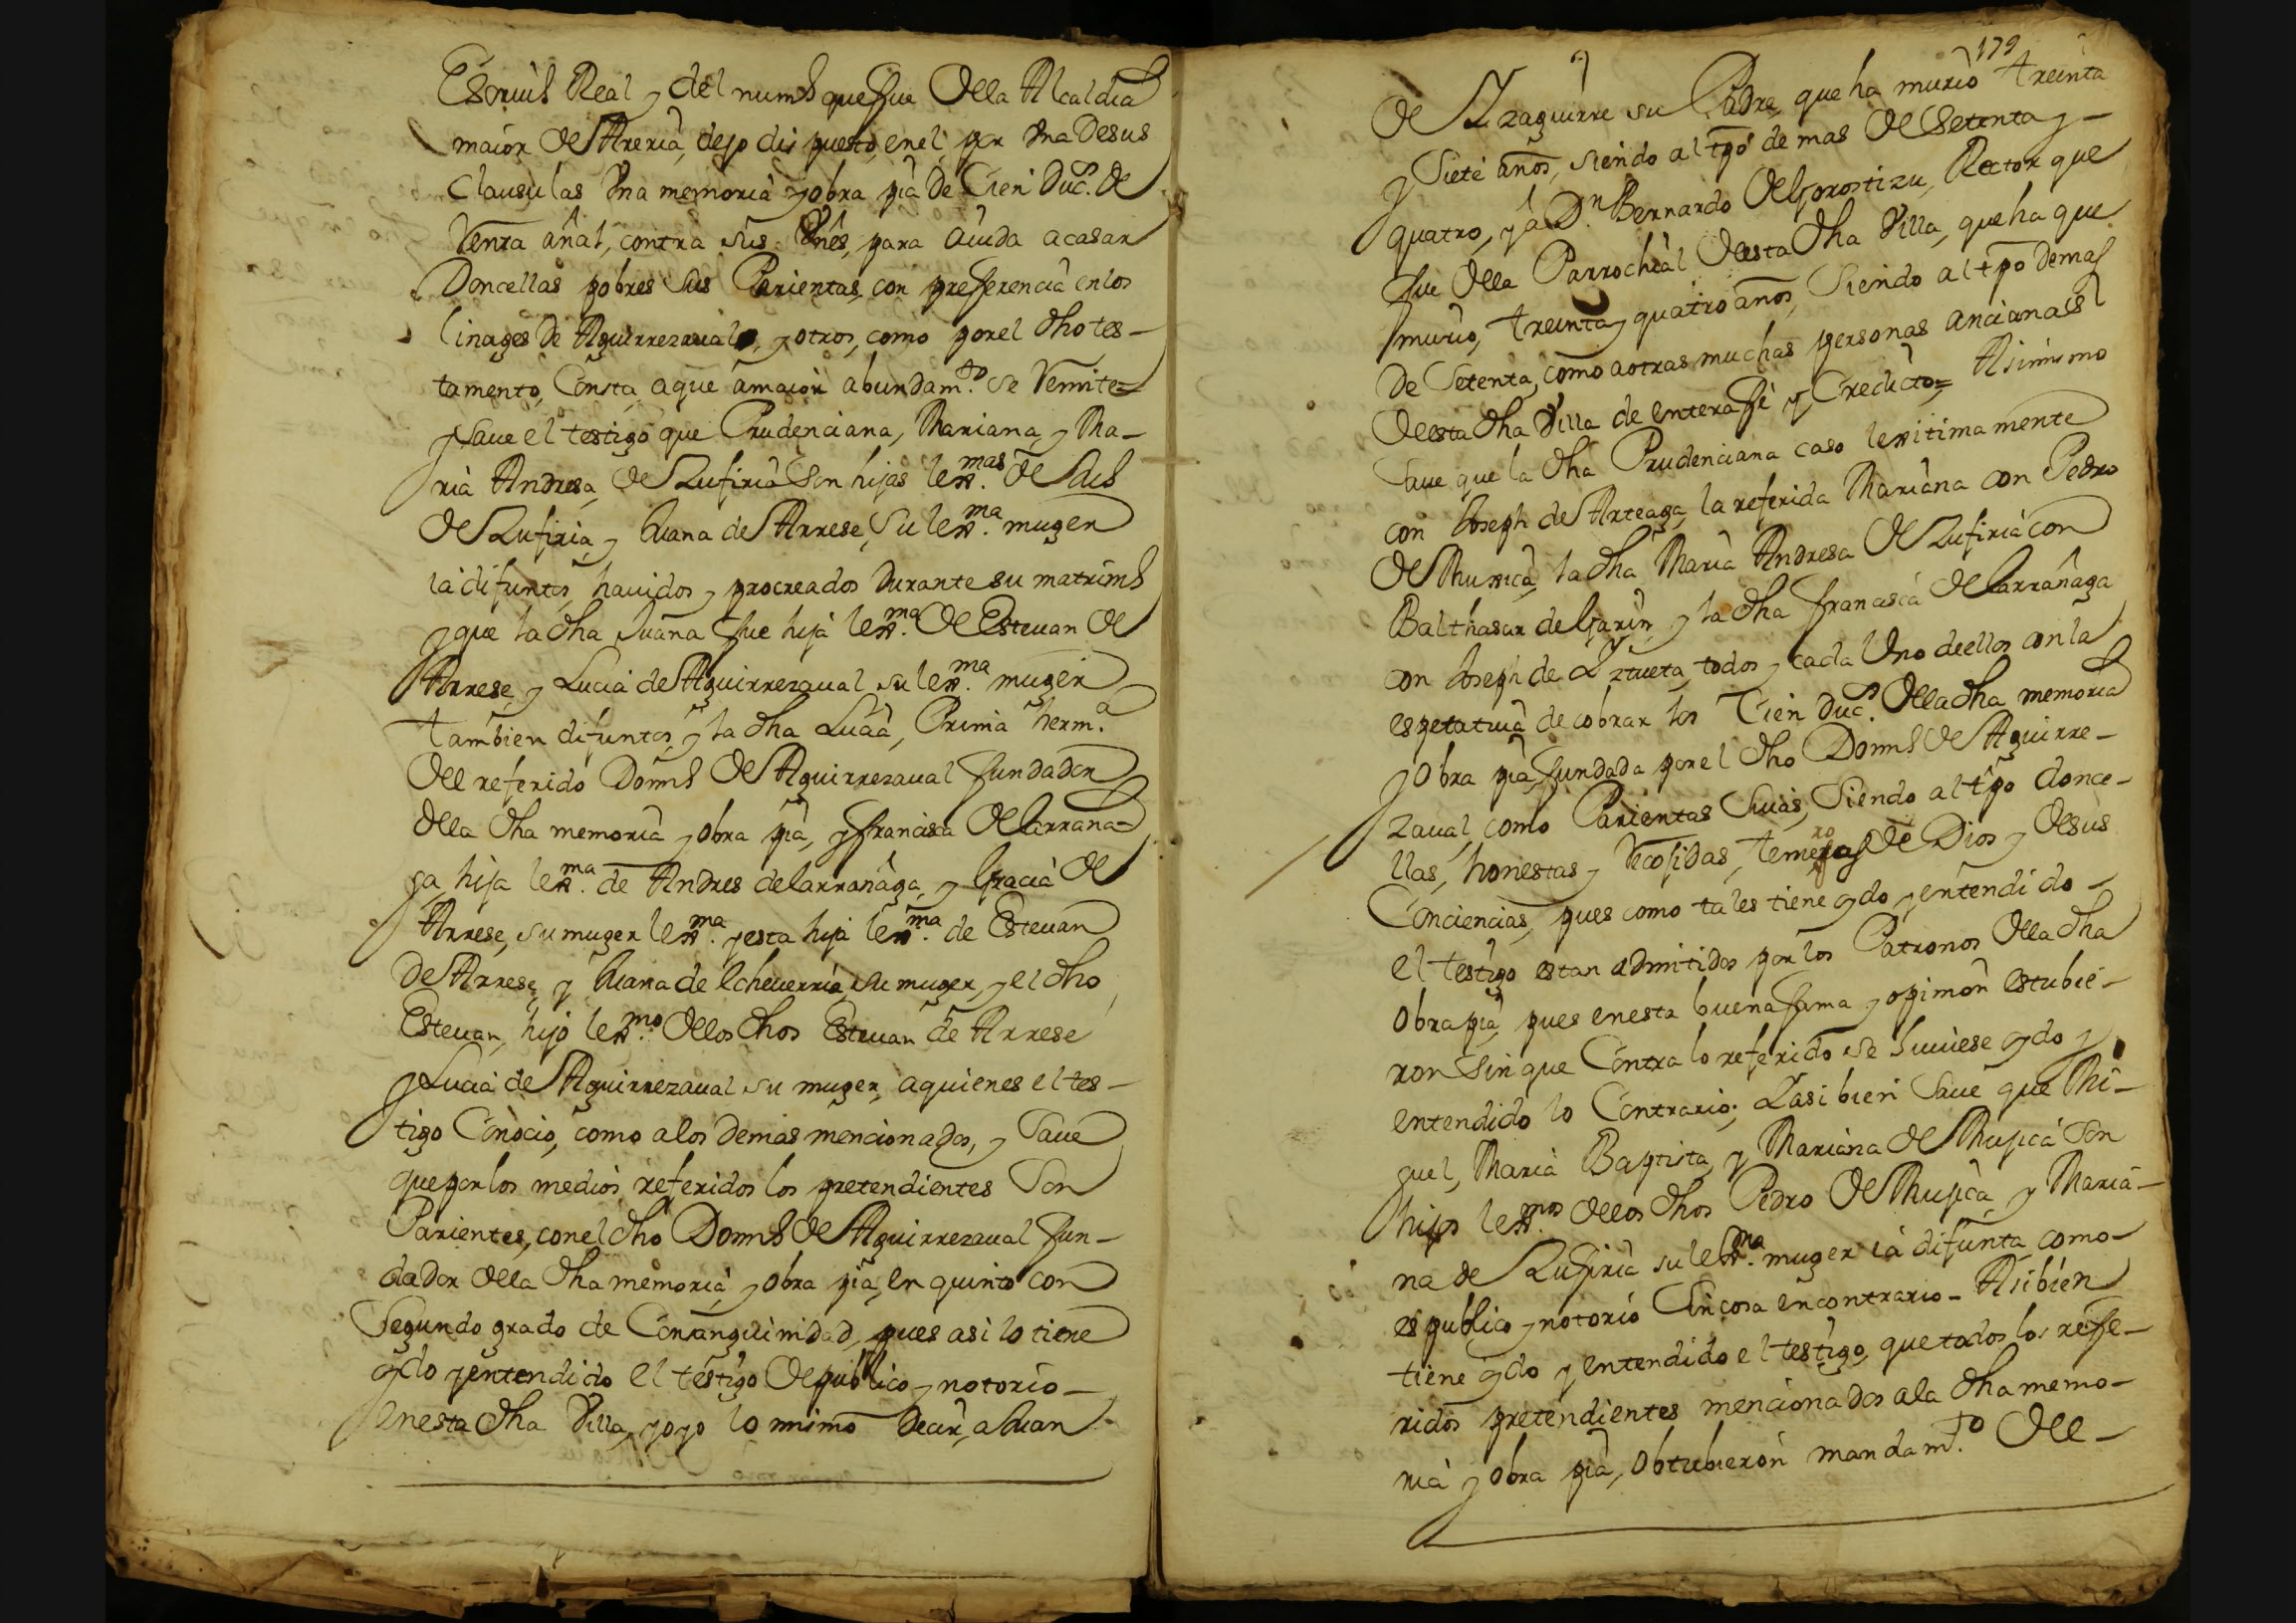 Escriuº Real y del numº que fue de la Alcaldia
maior de Areria, dejo dispuesto, en el, por Vna de sus
Clausulas Vna memoria y obra pia de Cien Ducs. de
Renta añal, contra sus Vnes, para aiuda a casar
Doncellas pobres sus Parientas, con preferencia en los
linages de Aguirrezaual, y otros, como por el dho tes-
tamento, Consta, a que a maior abundam.to se Remite=
y saue el testigo que Prudenciana, Mariana, y Ma-
ria Andresa, de Lufiria son hijas lexx.mas de Juº
de Lufiria, y Juana de Arrese, su lexx.ma muger
ia difuntos, hauidos, y procreados durante su matrimº
y que la dha Juana fue hija lexx.ma de Esteuan de
Arrese, y Lucia de Aguirrezaual su lexx.ma muger
tambien difuntos, y la dha Lucia, Prima herm.a
del referido Domº de Aguirrezaual fundador
de la dha memoria y obra pia, y francisca de Larrana=
ga, hija lexx.ma de Andres de Larrañaga, y Gracia de
Arrese, su muger lexx.ma y esta hija lexx.ma de Esteuan
de Arrese, y Juana de Echeuerria, su muger, y el dho
Esteuan, hijo lexx.mo de los dhos Esteuan de Arrese
y Lucia de Aguirrezaual su muger, a quienes el tes-
tigo Conocio, como a los demas mencionados, y Saue
que por los medios referidos los pretendientes Son
Parientes, con el dho Domº de Aguirrezaual fun-
dador de la dha memoria, y obra pia, en quinto con
Segundo grado de Consanguinidad, pues asi lo tiene
oydo y entendido el testigo de publico y notorio-
en esta dha Villa, y oyo lo mismo decir, a Juan
179
de Yzaguirre su Padre, que ha murio treinta
y Siete años, siendo al tpo de mas de Setenta y-
quatro, y a Dn Bernardo de Gorostizu, Rector que
fue de la Parrochial de esta dha Villa, que ha que
murio, treinta y quatro años, Siendo al tpo demas
de Setenta, como a otras muchas personas ancianas
de esta dha Villa de entera fe y Credicto= Asimismo
Saue que la dha Prudenciana caso lexitimamente
con Joseph de Arteaga, la referida Mariana con Pedro
de Muxica, la dha Maria Andresa de Lufiria con
Balthasar de Garin, y la dha francisca de Larrañaga
con Joseph de Yztueta, todos, y cada Uno de ellos con la
espetatiua de cobrar los Cien Ducs. de la dha memoria
y Obra pia, fundada por el dho Domº de Aguirre-
zaual, como Parientas Suias, Siendo al tpo donce-
llas, honestas y Recojidas, temerosas de Dios y de sus
Conciencias, pues como tales tiene oydo y entendido-
el testigo estan admitidos por los Patronos de la dha
Obra pia, pues en esta buena fama y opinion estubie-
ron sin que Contra lo referido se huuiese oydo y
entendido lo Contrario; Y asi bien Saue que Mi-
guel, Maria Baptista, y Mariana de Mujica Son
hijos lexx.mos de los dhos Pedro de Mujica, y Maria-
na de Lufiria su lexx.ma muger ia difunta, como-
es publico y notorio Sin cosa en contrario- Asi bien
tiene oydo y entendido el testigo, que todos los refe-
ridos pretendientes mencionados a la dha memo-
ria y Obra pia, Obtubieron mandam.to de el-